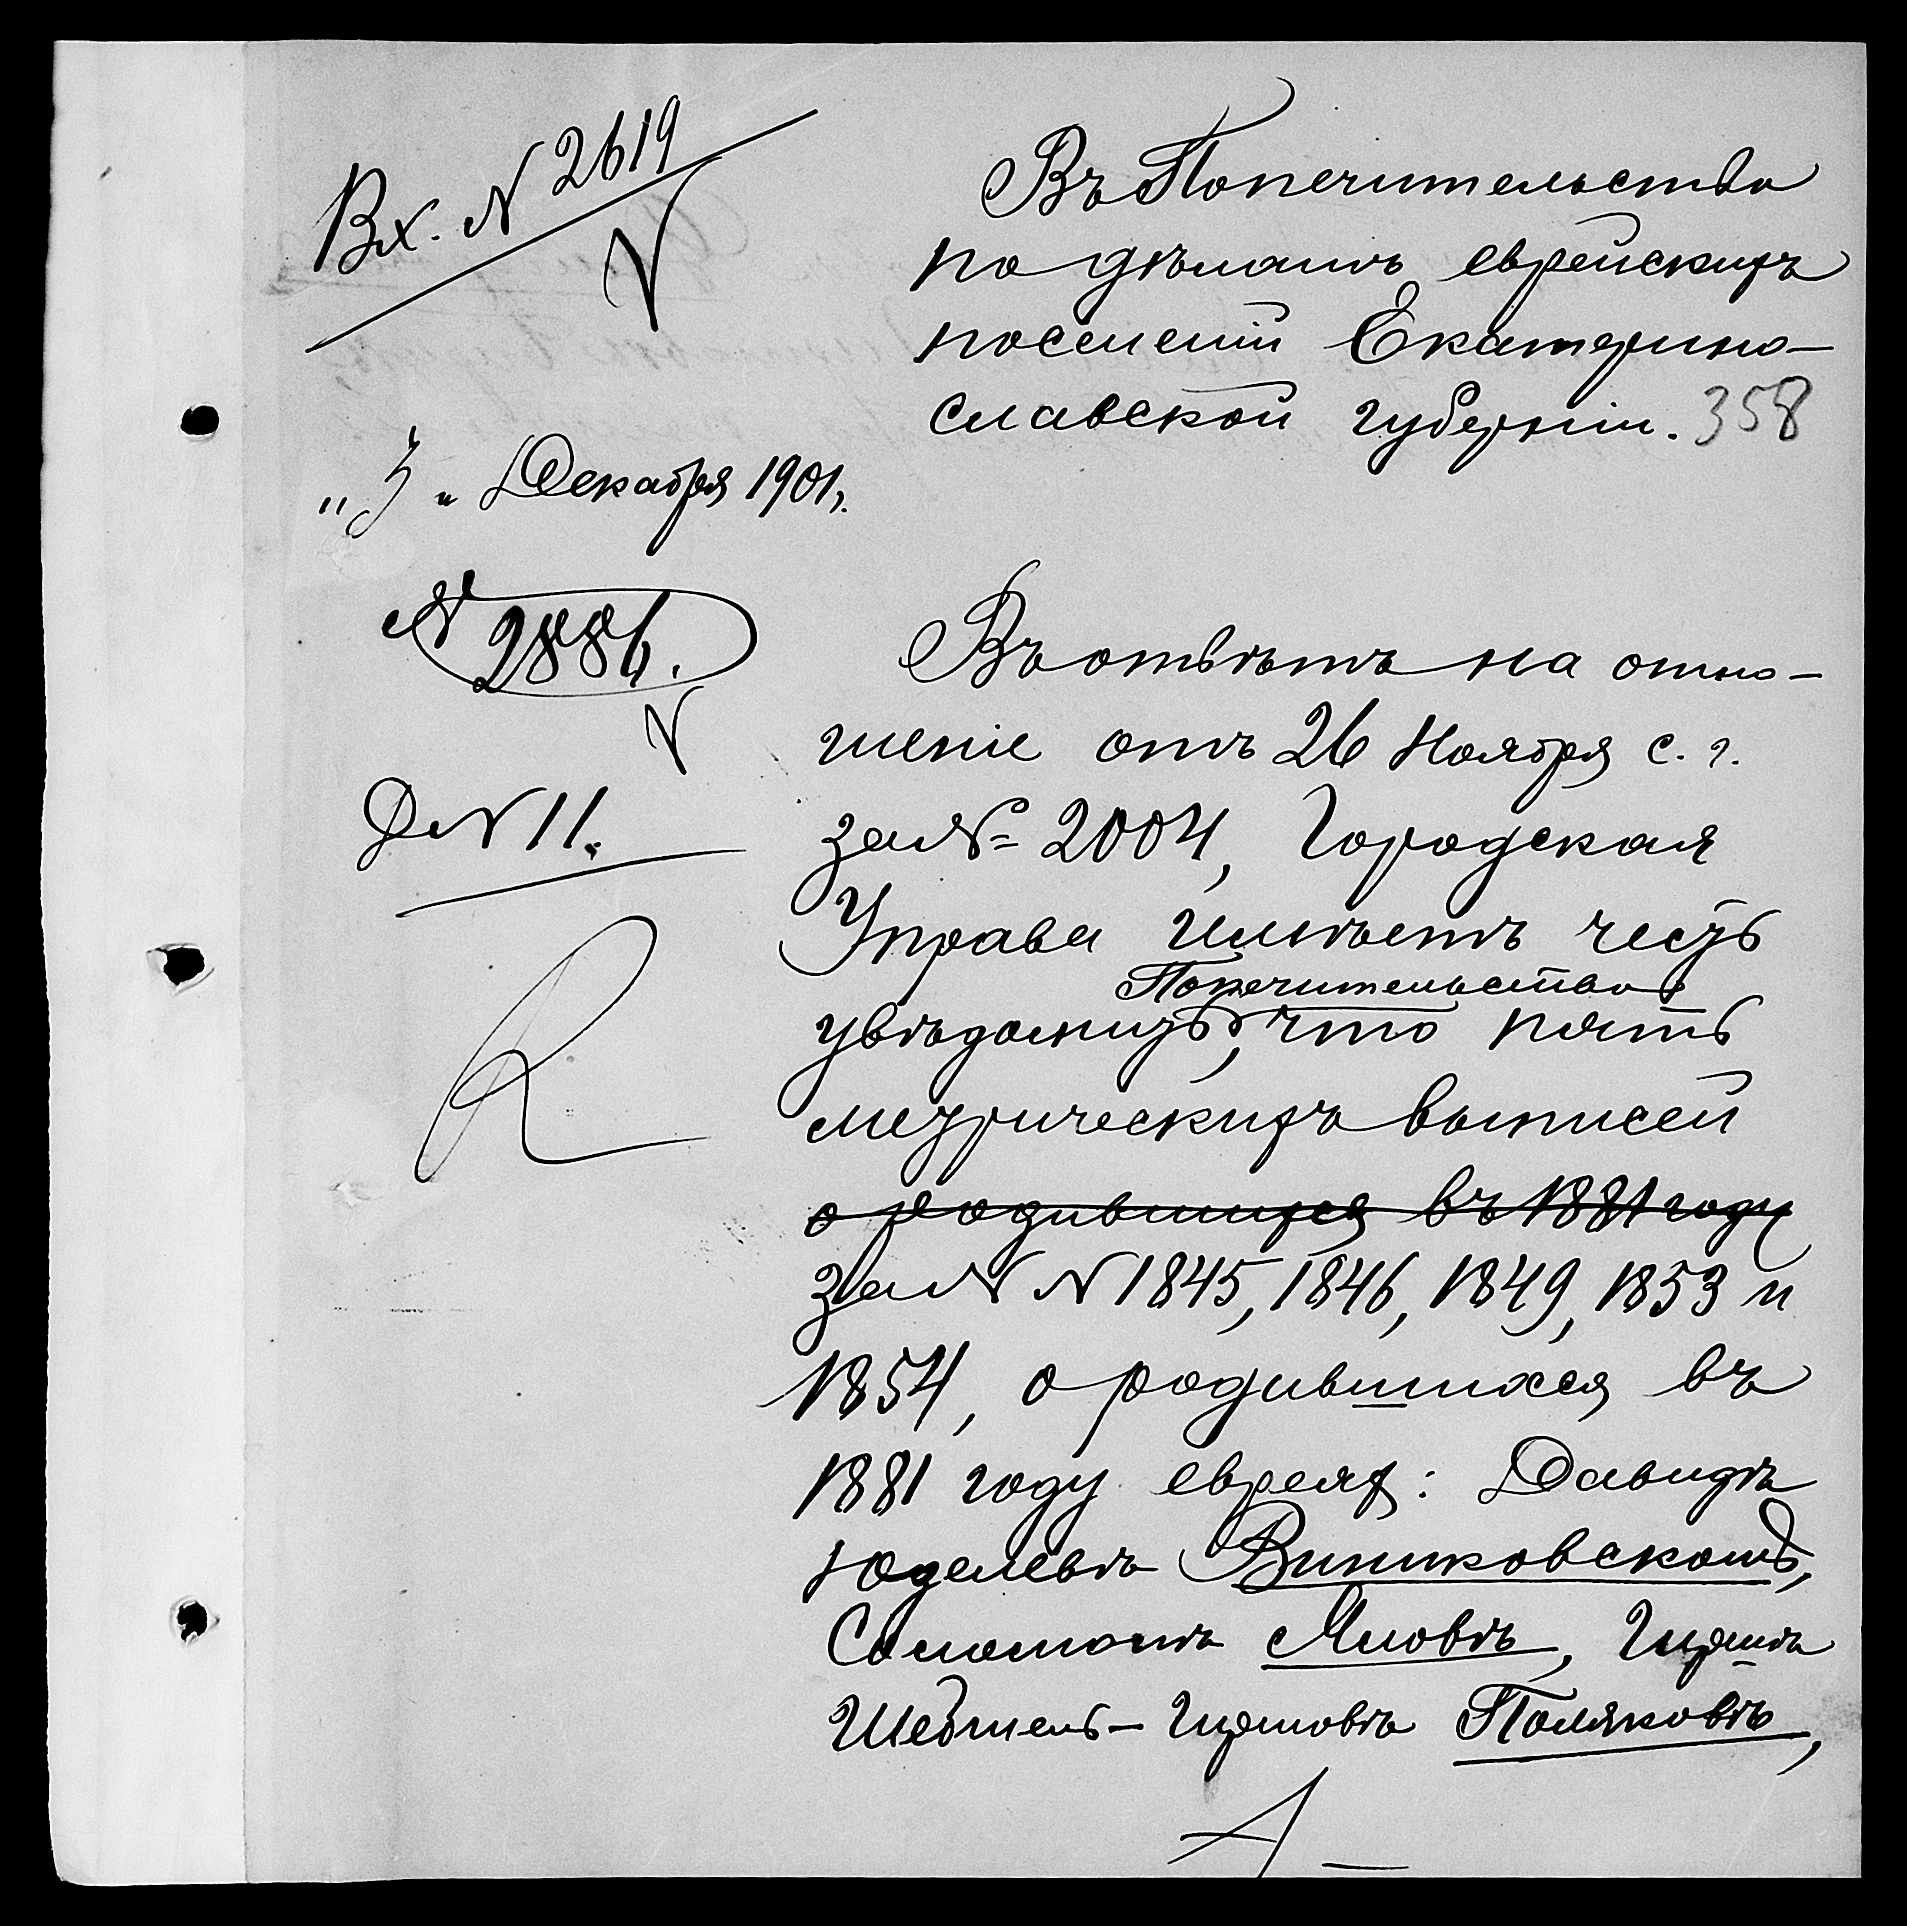 Вх. N 2619
Въ Попечительство
по дѣламъ еврейскихъ
поселеній Екатерино-
славской губерніи. 358
„3„ Декабря 1901 г.
№ 2886.
Въ отвѣтъ на отно-
шеніе отъ 26 Ноября с. г.
за № 2004, Городская
Управа имѣетъ честь
Попечительство
увѣдомить, что пять
Д N 11.
метрическихъ выписей
о родившихся въ 1881 году
за N N 1845, 1846, 1849, 1853 и
1854, о родившихся въ
1881 году евреях: Давидѣ
Юделевѣ Винниковскомъ,
Соломонѣ Яловѣ, Гиршѣ
Шевтель-Гиршовѣ Поляковѣ,